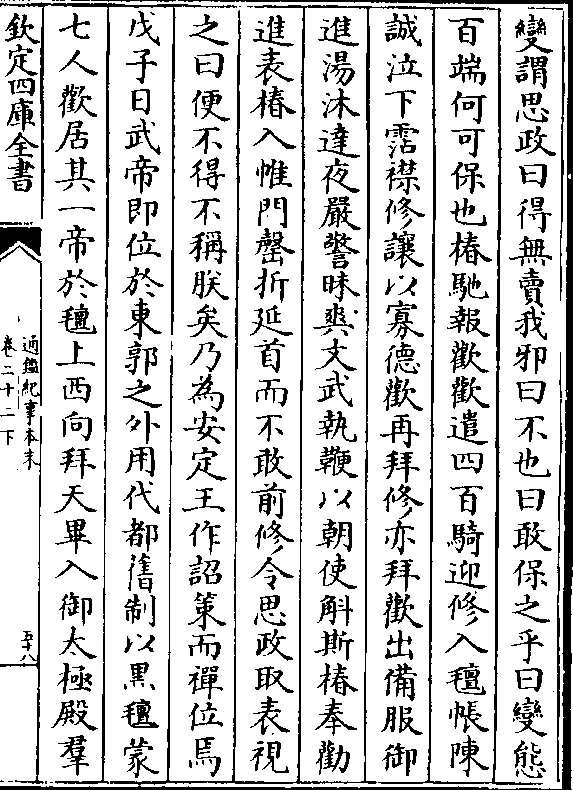 變謂思政曰得無賣我邪曰不也曰敢保之乎曰變態
百端何可保也椿馳報歡歡遣四百騎迎修入氊帳陳
誠泣下霑襟修讓以寡德歡再拜修亦拜歡出備服御
進湯沐達夜嚴警昧爽文武執鞭以朝使斛斯椿奉勸
進表椿入帷門罄折延首而不敢前修令思政取表視
之曰便不得不稱朕矣乃為安定王作詔策而禪位焉
戊子日武帝即位於東郭之外用代都舊制以黒氊蒙
七人歡居其一帝於氊上西向拜天畢入御太極殿羣
欽定四庫全書
通鑑紀事本末
卷二十二下
五十八